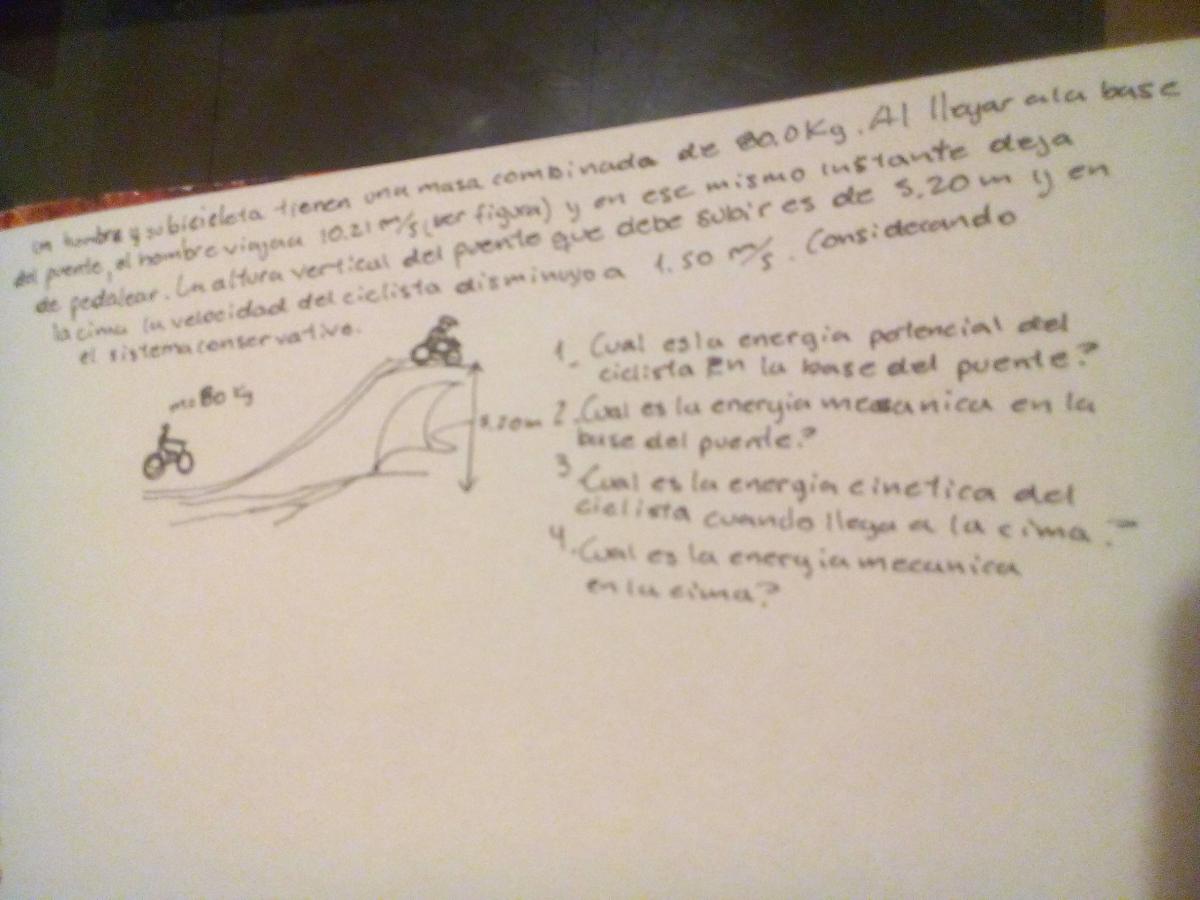 un hombre y su bicicleta tienen una masa combinada de 80.0 Kg. Al llegar a la base
del puente, el hombre viaja a 10.21 m/s (ver figura) y en ese mismo instante deja
de pedalear. La altura vertical del puente que debe subir es de 5.20 m y en
la cima la velocidad del ciclista disminuyo a 1.50 m/s. Considerando
el sistema conservativo.
m=80 Kg
5.20m
1. Cual es la energia potencial del
ciclista En la base del puente?
2. Cual es la energia mecanica en la
base del puente?
3 Cual es la energia cinetica del
ciclista cuando llega a la cima?
4. Cual es la energia mecanica
en la cima?